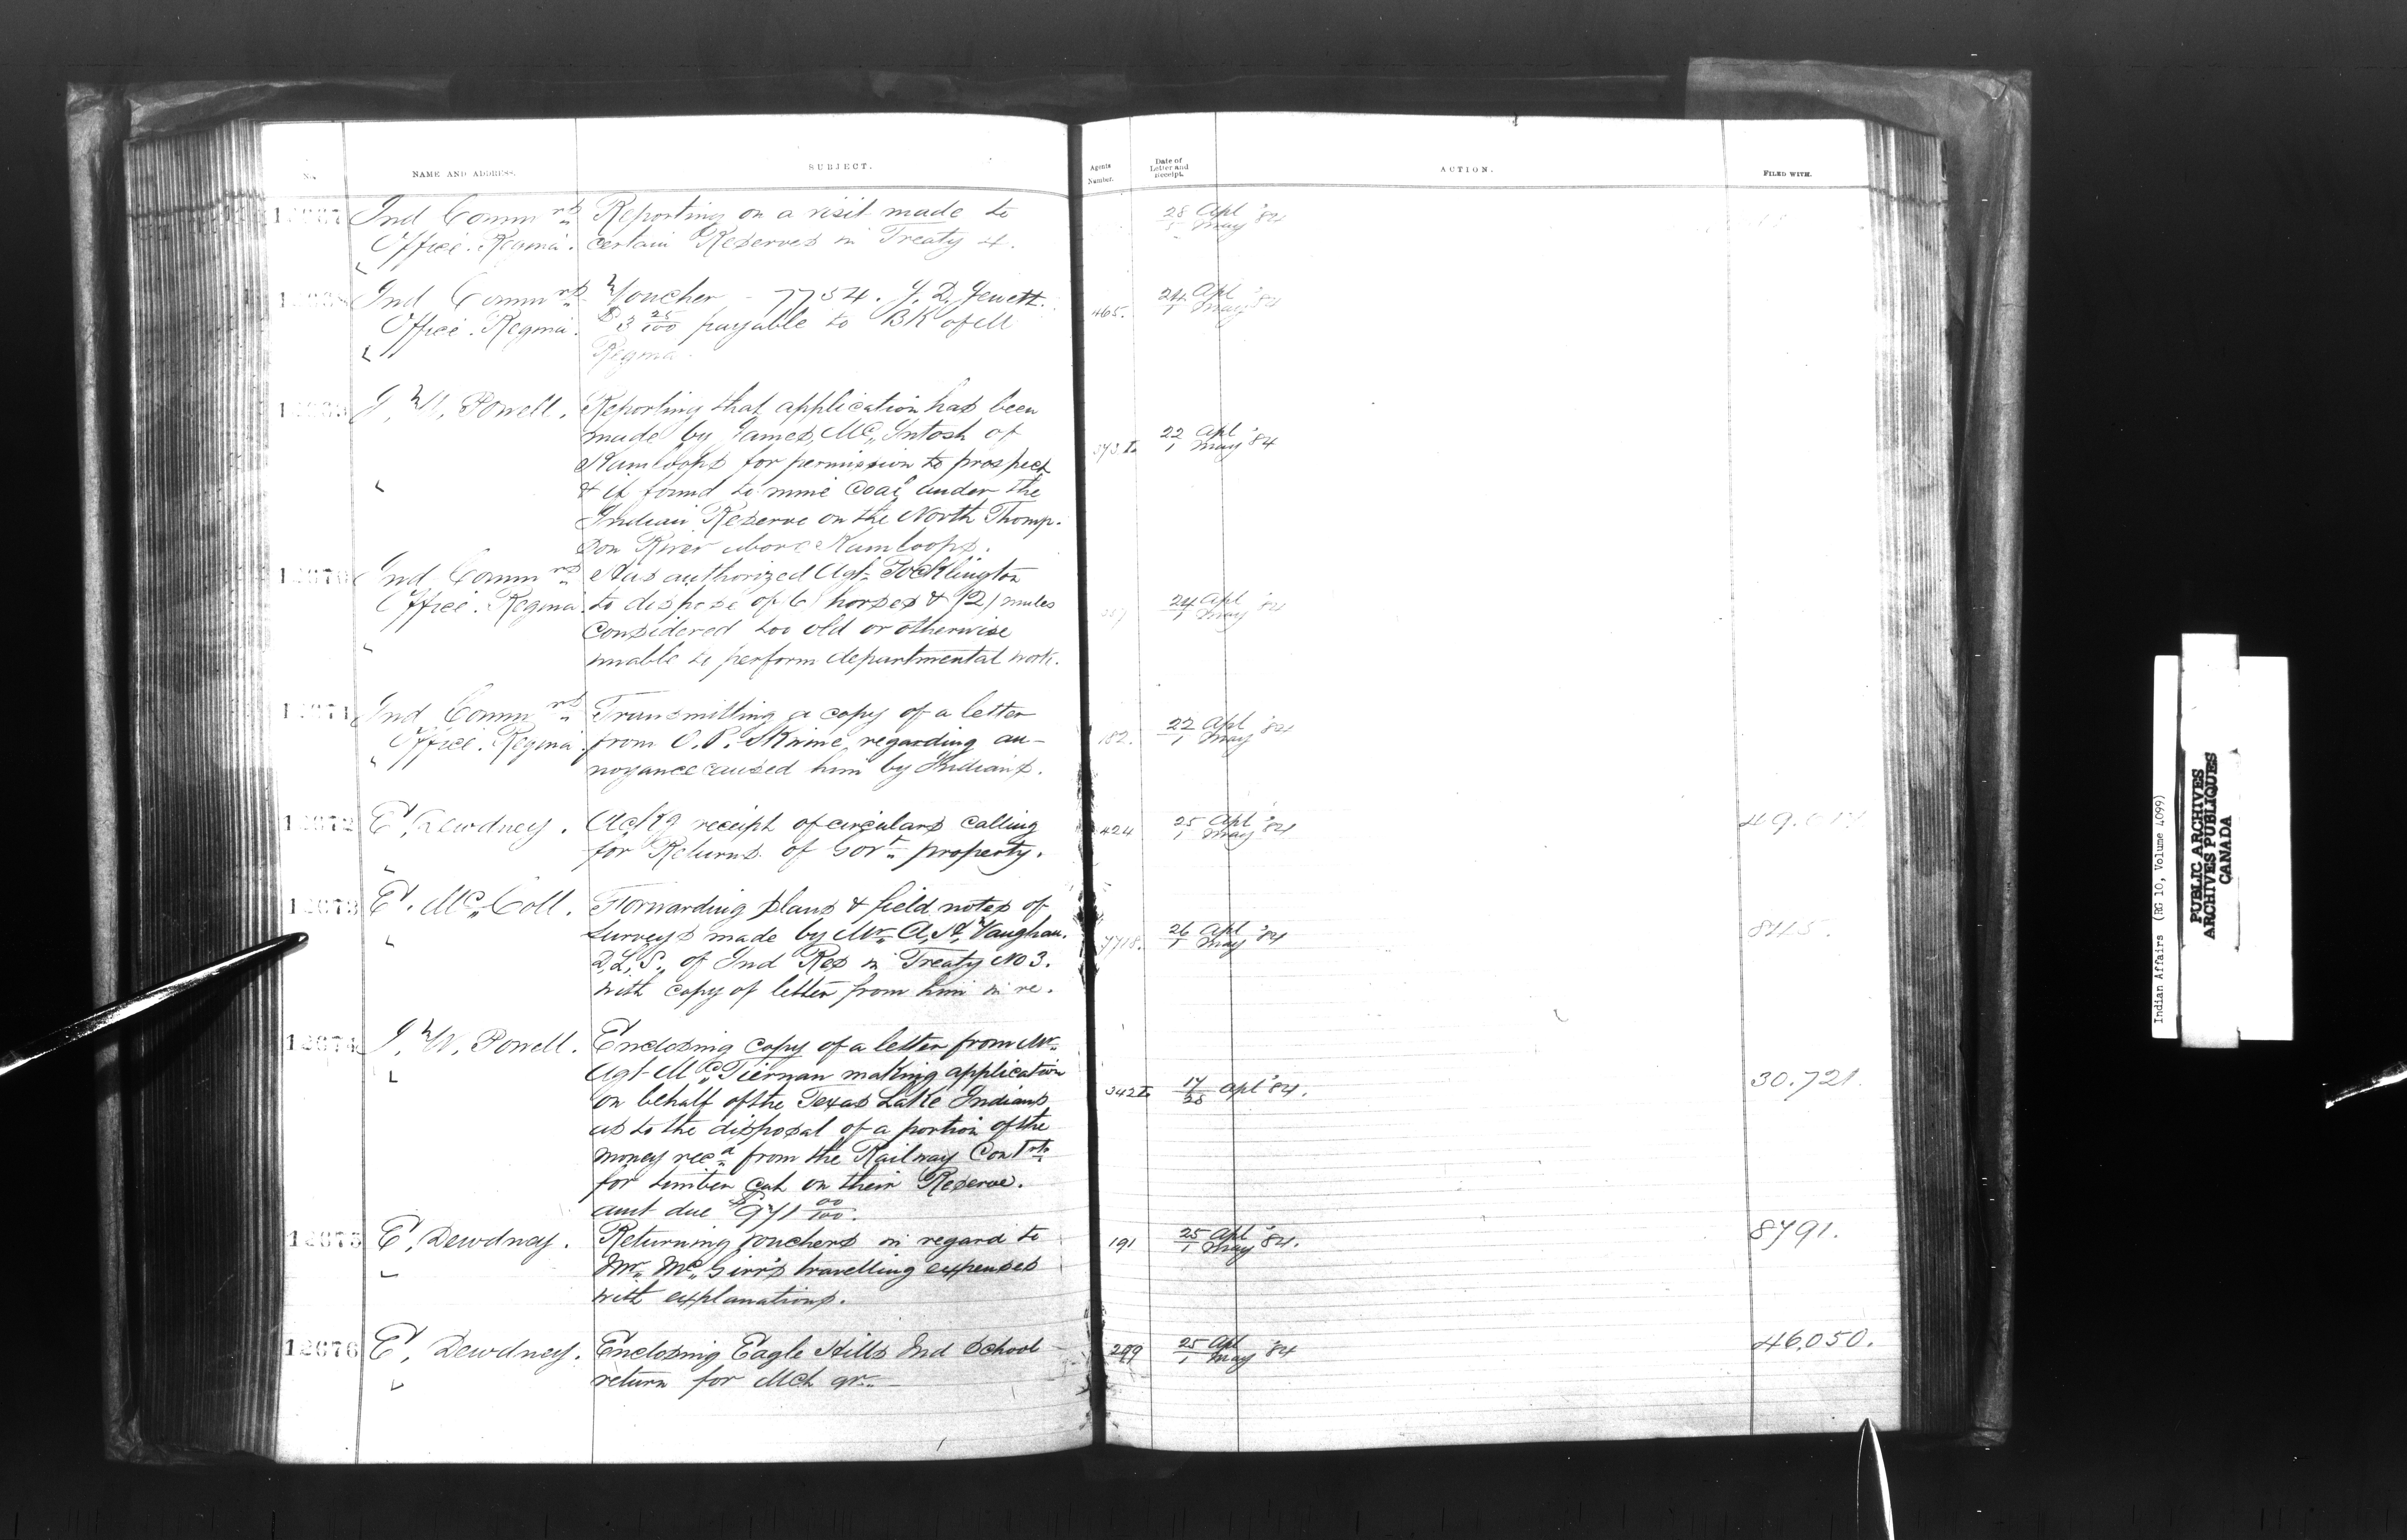 No.
NAME AND ADDRESS.
SUBJECT.
Agents Number.
Date of Letter and Receipt.
ACTION.
FILED WITH.
12067 Ind Commrs Reporting on a visit made to 28 Apl '84
Office. Regina. certain Reserves in Treaty 4. May
12068 Ind Commrs Voucher - 7734. J. D. Jewett. 465. 24 Apl '84
Office. Regina. $3 25/100 payable to BK of M 1 May
Regina.
12069 I. W. Powell. Reporting that application has been
made by James Mc Intosh of 22 Apl '84
Kamloops for permission to prospect 1 May
& if found to mine coal under the
Indian Reserve on the North Thomp-
son River above Kamloops.
12070 Ind Commrs Has authorized Agt. Pocklington
Office. Regina. to dispose of (6) horses & (2) mules 24 Apl '84
considered too old or otherwise 1 May
unable to perform departmental work.
12071 Ind Commrs Transmitting a copy of a letter 22 Apl '84
Office. Regina. from O. P. Skrine, regarding an- 182. 1 May
noyance caused him by Indians.
12072 E. Dewdney. Ackg receipt of circulars calling 424 25 Apl '84
for Returns of Govt. property. 1 May
12073 E. Mc Coll. Forwarding plans & field notes of
surveys made by Mr. A. H. Vaughan. 26 Apl '84
D.L.S., of Ind Res in Treaty No 3. 1 May
with copy of letter from him in re.
12074 I. W. Powell. Enclosing copy of a letter from Mr.
Agt. Mc Tiernan making application 30.721.
on behalf of the Texas Lake Indians 342 17/28 Apl '84.
as to the disposal of a portion of the
money recd. from the Railway Contrs.
for timber cut on their Reserve.
amt due $971 00/100.
12075 E. Dewdney. Returning vouchers in regard to 191 25 Apl '84. 8791.
Mr. Mc Girr's travelling expenses 1 May
with explanations.
12076 E. Dewdney. Enclosing Eagle Hills Ind School 299 25 Apl '84 46.050.
return for Mch qr. 1 May
Indian Affairs (RG 10, Volume 4099)
PUBLIC ARCHIVES
ARCHIVES PUBLIQUES
CANADA